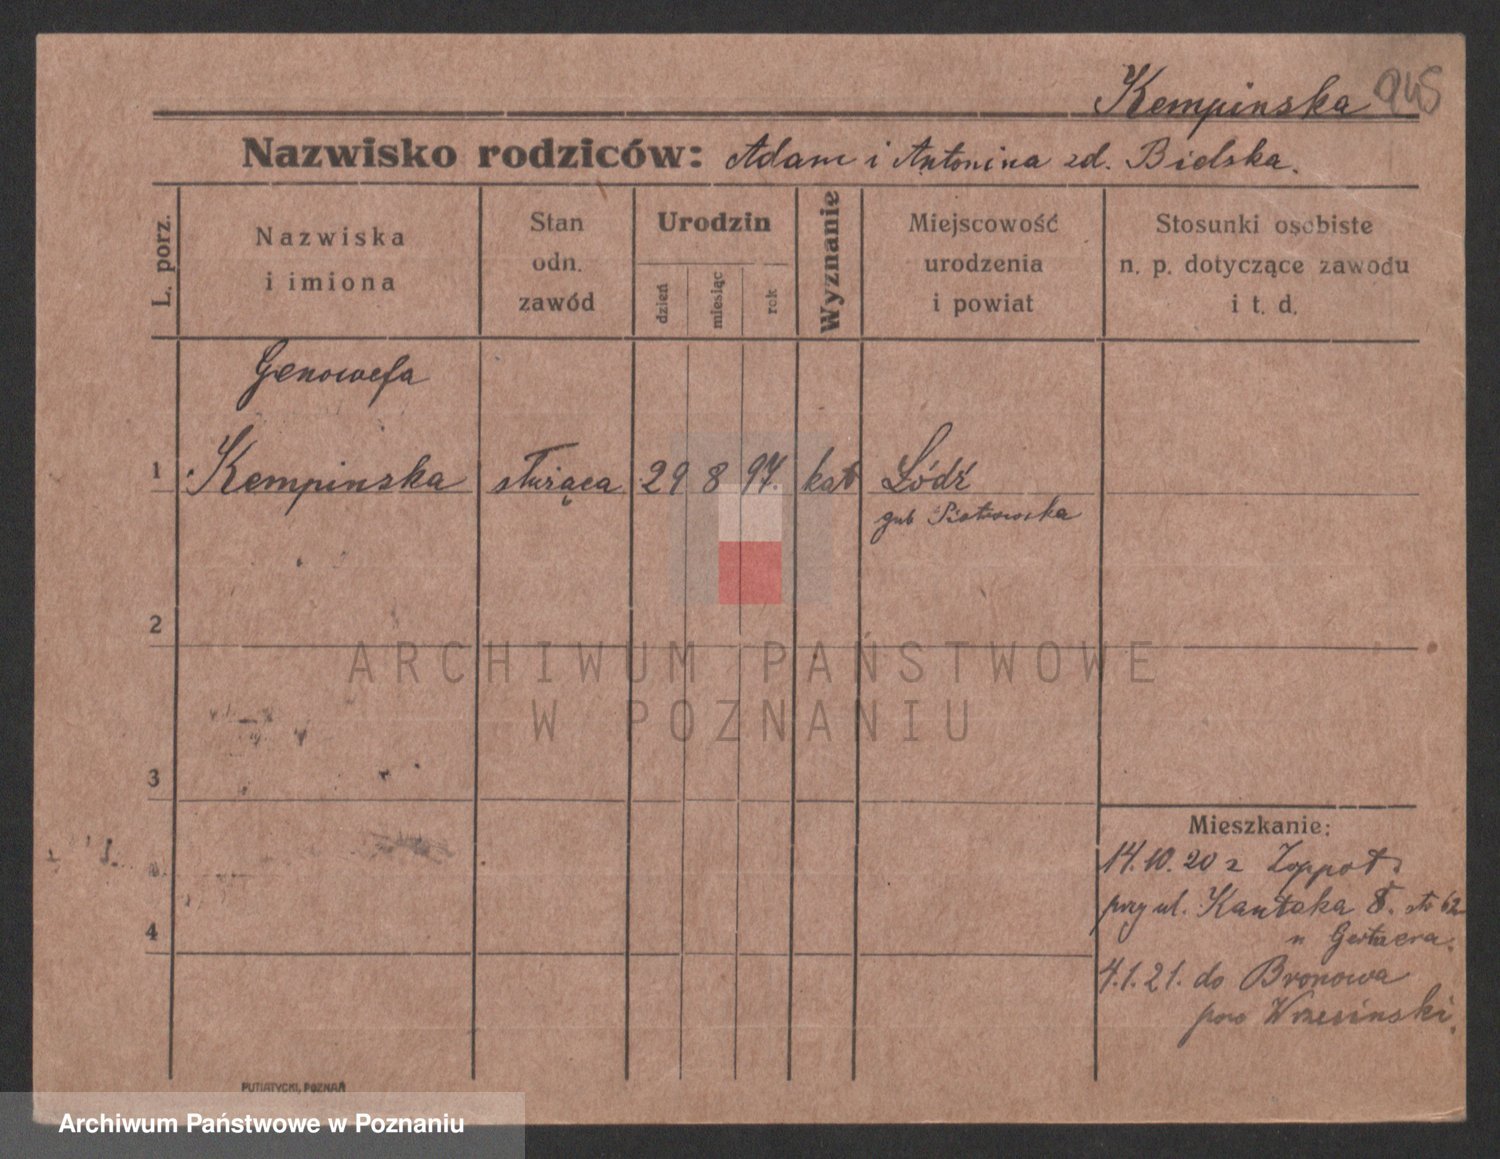 Kempinska 945
Nazwisko rodziców: Adam i Antonina zd. Bielska.
L. porz.
Nazwiska
i imiona
Stan
odn.
zawód
Urodzin
dzień
miesiąc
rok
Wyznanie
Miejscowość
urodzenia
i powiat
Stosunki osobiste
n. p. dotyczące zawodu
i t. d.
Genowefa
1 Kempinska służąca 29 8 97. kat Łódź
gub Piotrowska
2
ARCHIWUM PAŃSTWOWE
W POZNANIU
3
Mieszkanie:
14.10.20 z Zoppot
przy ul. Kantaka 8.
4
4.1.21. do Bronowa
pow Wrzesinski.
PUTIATYCKI, POZNAŃ
Archiwum Państwowe w Poznaniu